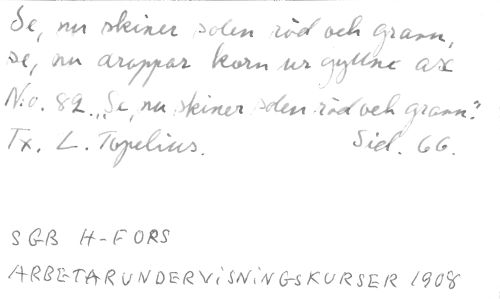 Se, nu skiner solen röd och grann,
se, nu droppar korn ur gyllne ax
N:o. 82. „Se, nu skiner solen röd och grann."
Tx. L. Topelius. Sid. 66.
SGB H-FORS
ARBETARUNDERVISNINGSKURSER 1908